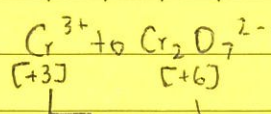 Cr³⁺ to Cr₂O₇²⁻
[+3] [+6]